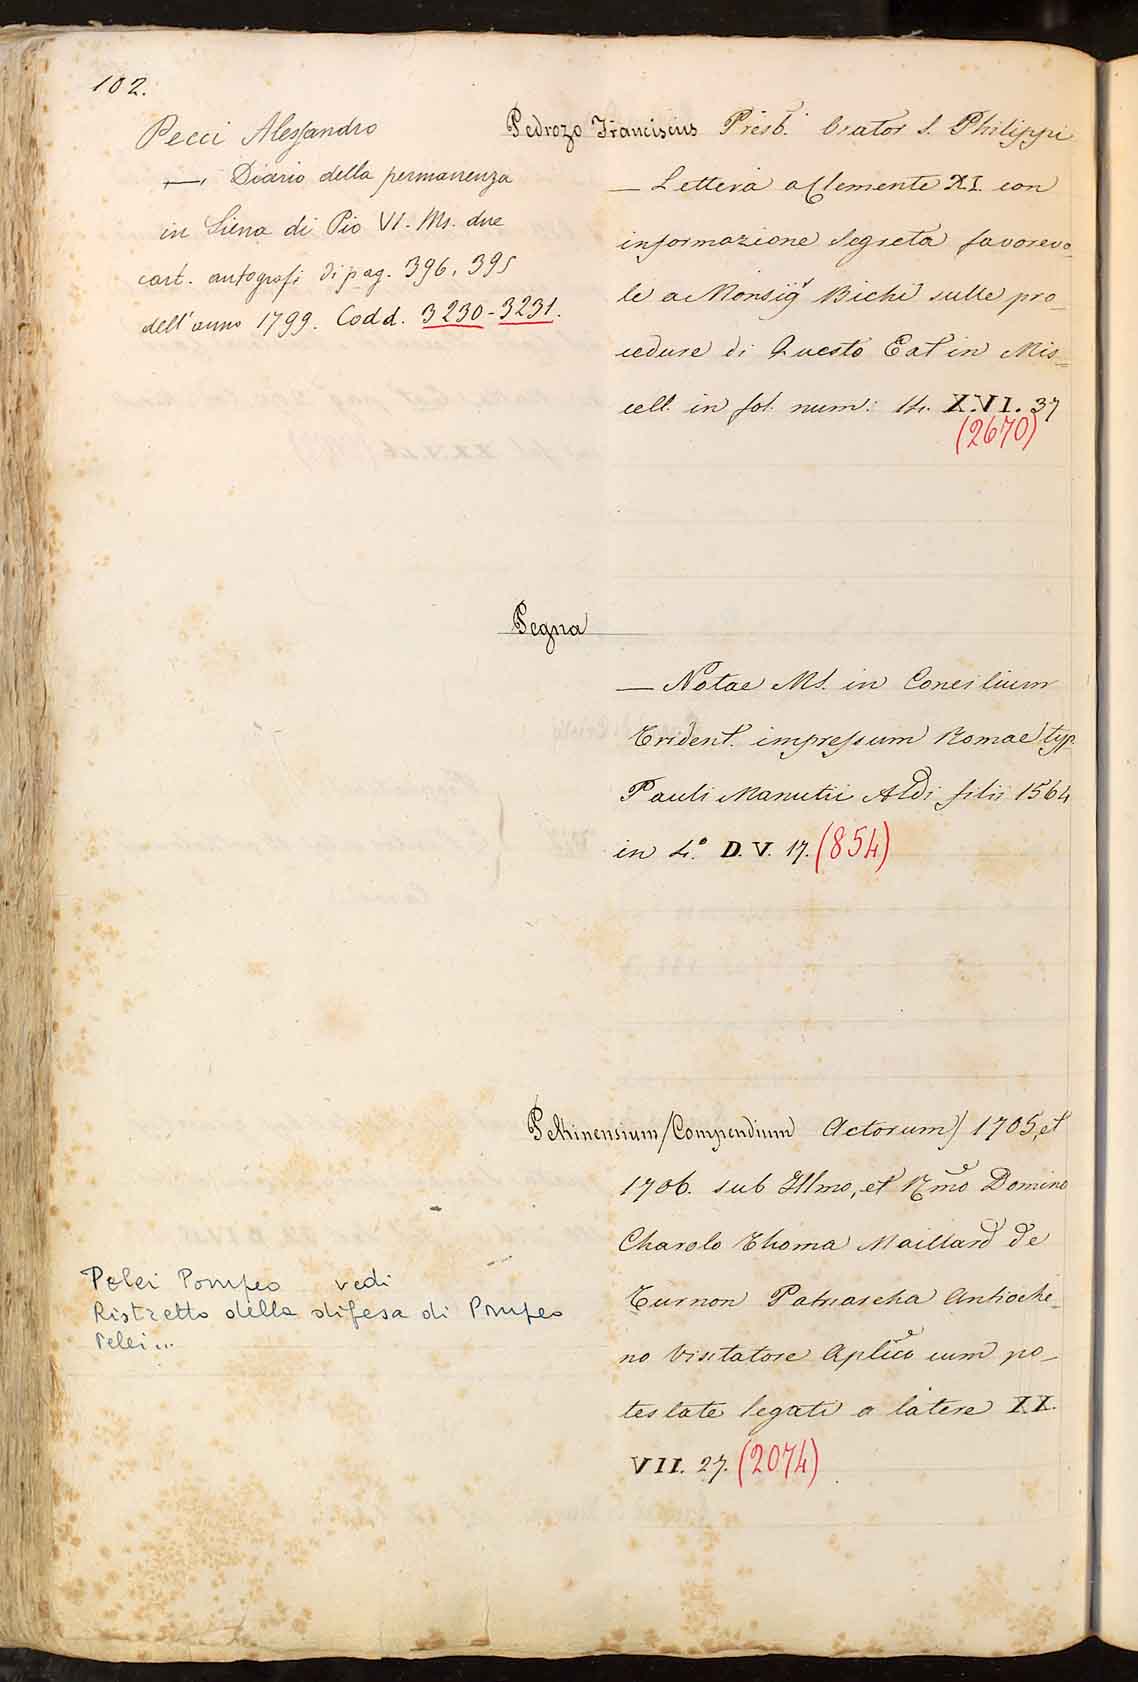 102.
Pecci Alessandro
—, Diario della permanenza
in Siena di Pio VI. Ms. due
cart. autografi di pag. 396, 395
dell'anno 1799. Codd. 3230-3231.
Pedrozo Franciscus Presb. Orator S. Philippi
— Lettera a Clemente XI. con
informazione segreta favorevo-
le a Monsigr Bichi sulle pro-
cedure di Questo Eat in Mis=
cell. in fol. num: 14. X.VI. 37
(2670)
Pegna
— Notae Ms. in Concilium
Trident. impressum Romae typ.
Pauli Manutii Aldi filii 1564
in 4.° D. V. 17. (854)
Pekinensium/Compendium Actorum) 1705, et
1706. sub Illmo, et Rmo Domino
Charolo Thoma Maillard de
Turnon Patriascha Antioche-
no Visitatore Aplico cum po-
testate legati a latere XX.
VII. 27. (2074)
Pelei Pompeo vedi
Ristretto della difesa di Pompeo
Pelei...